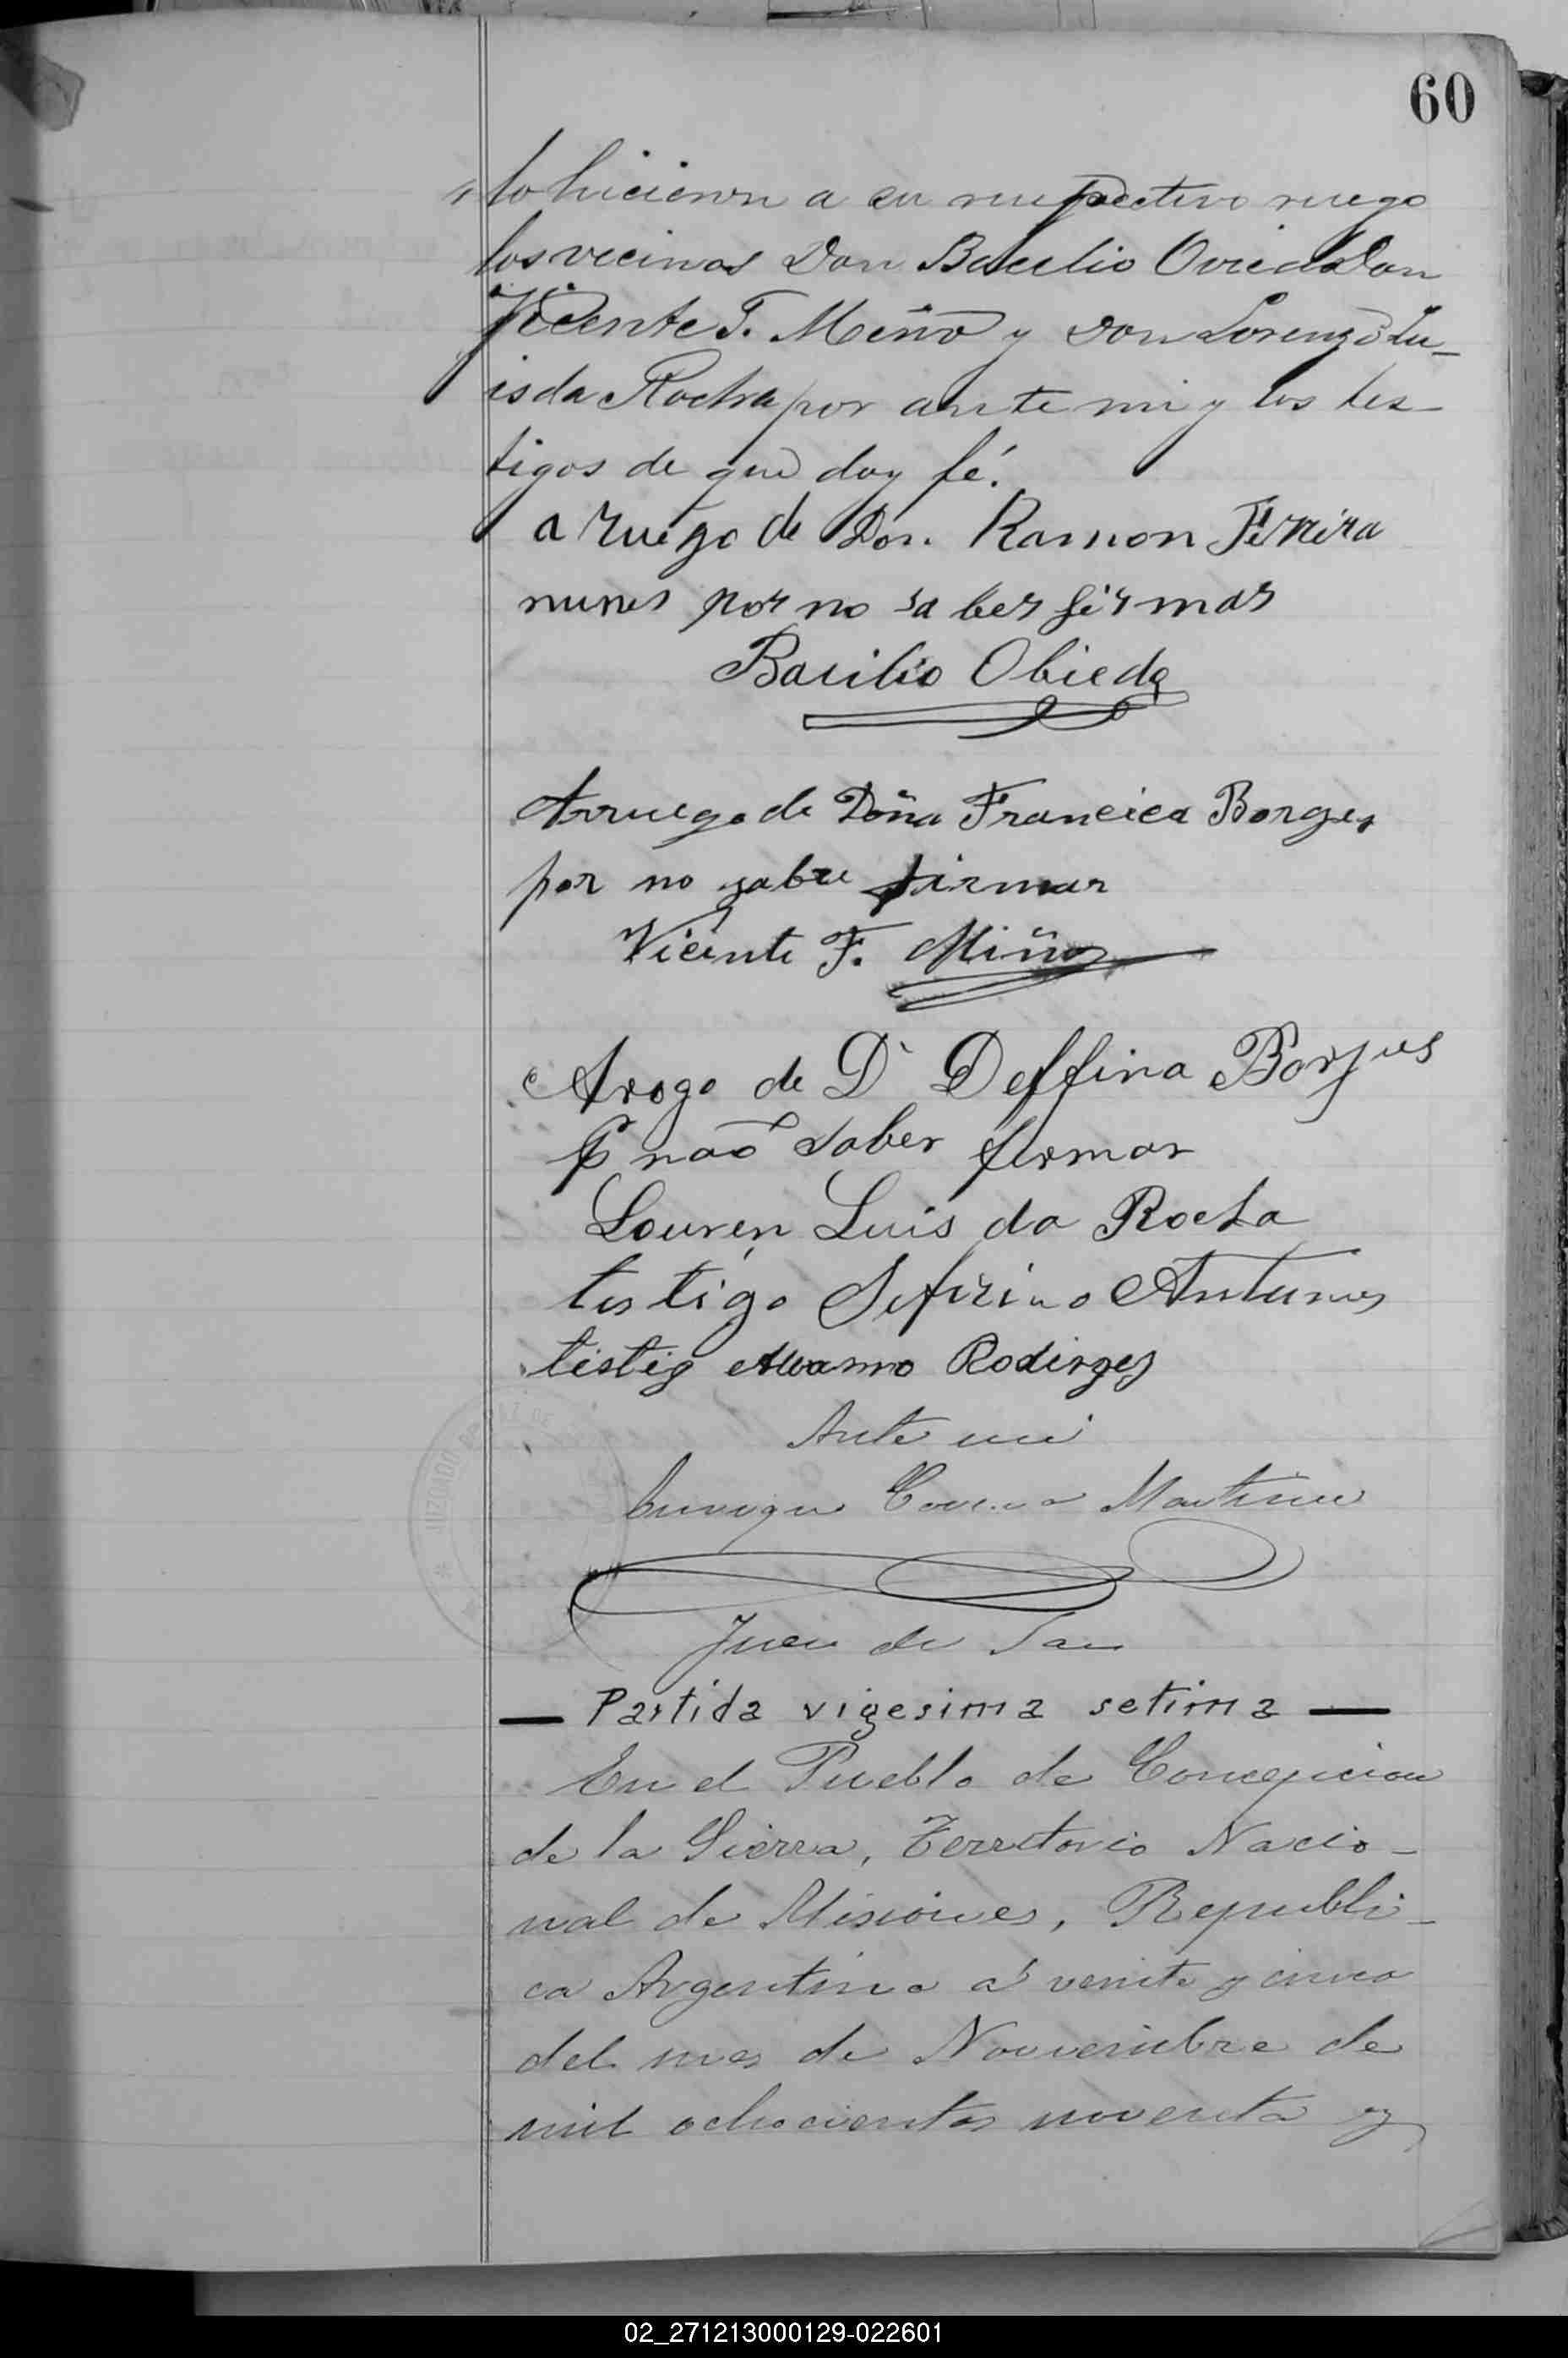 60
lo hicieron a su respectivo ruego
los vecinos Don Bacilio Oviedo Don
Vicente F. Miño y Don Lorenzo Lu-
is da Rocha por ante mi y los tes-
tigos de que doy fé.
a ruego de Don Ramon Ferreira
nunes por no saber firmar
Bacilio Obieda
Arruego de Doña Francica Borges
por no sabre firmar
Vicente F. Miño
Arogo de Da Delfina Borjes
P não saber firmar
Louren Luis da Rocha
testigo Seferino Antunes
testig Rodirges
Ante mi
Enrique Martinez
Juez de Paz
— Partida vigesima setima —
En el Pueblo de Concepcion
de la Sierra, Territorio Nacio-
nal de Misiones, Republi-
ca Argentina á veinte y cinco
del mes de Noviembre de
mil ochocientos noventa y
JUZGADO DE PAZ DE
02_271213000129-022601